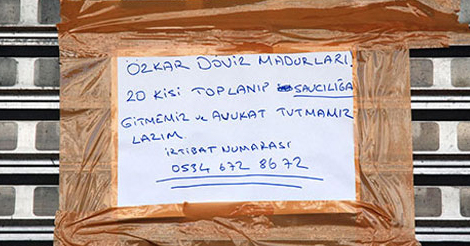 ÖZKAR DÖVİZ MADURLARI
20 KİSİ TOPLANIP SAVCILIĞA
GİTMEMİZ ve AVUKAT TUTMAMIZ
LAZIM.
İRTİBAT NUMARASI
0534 672 86 72